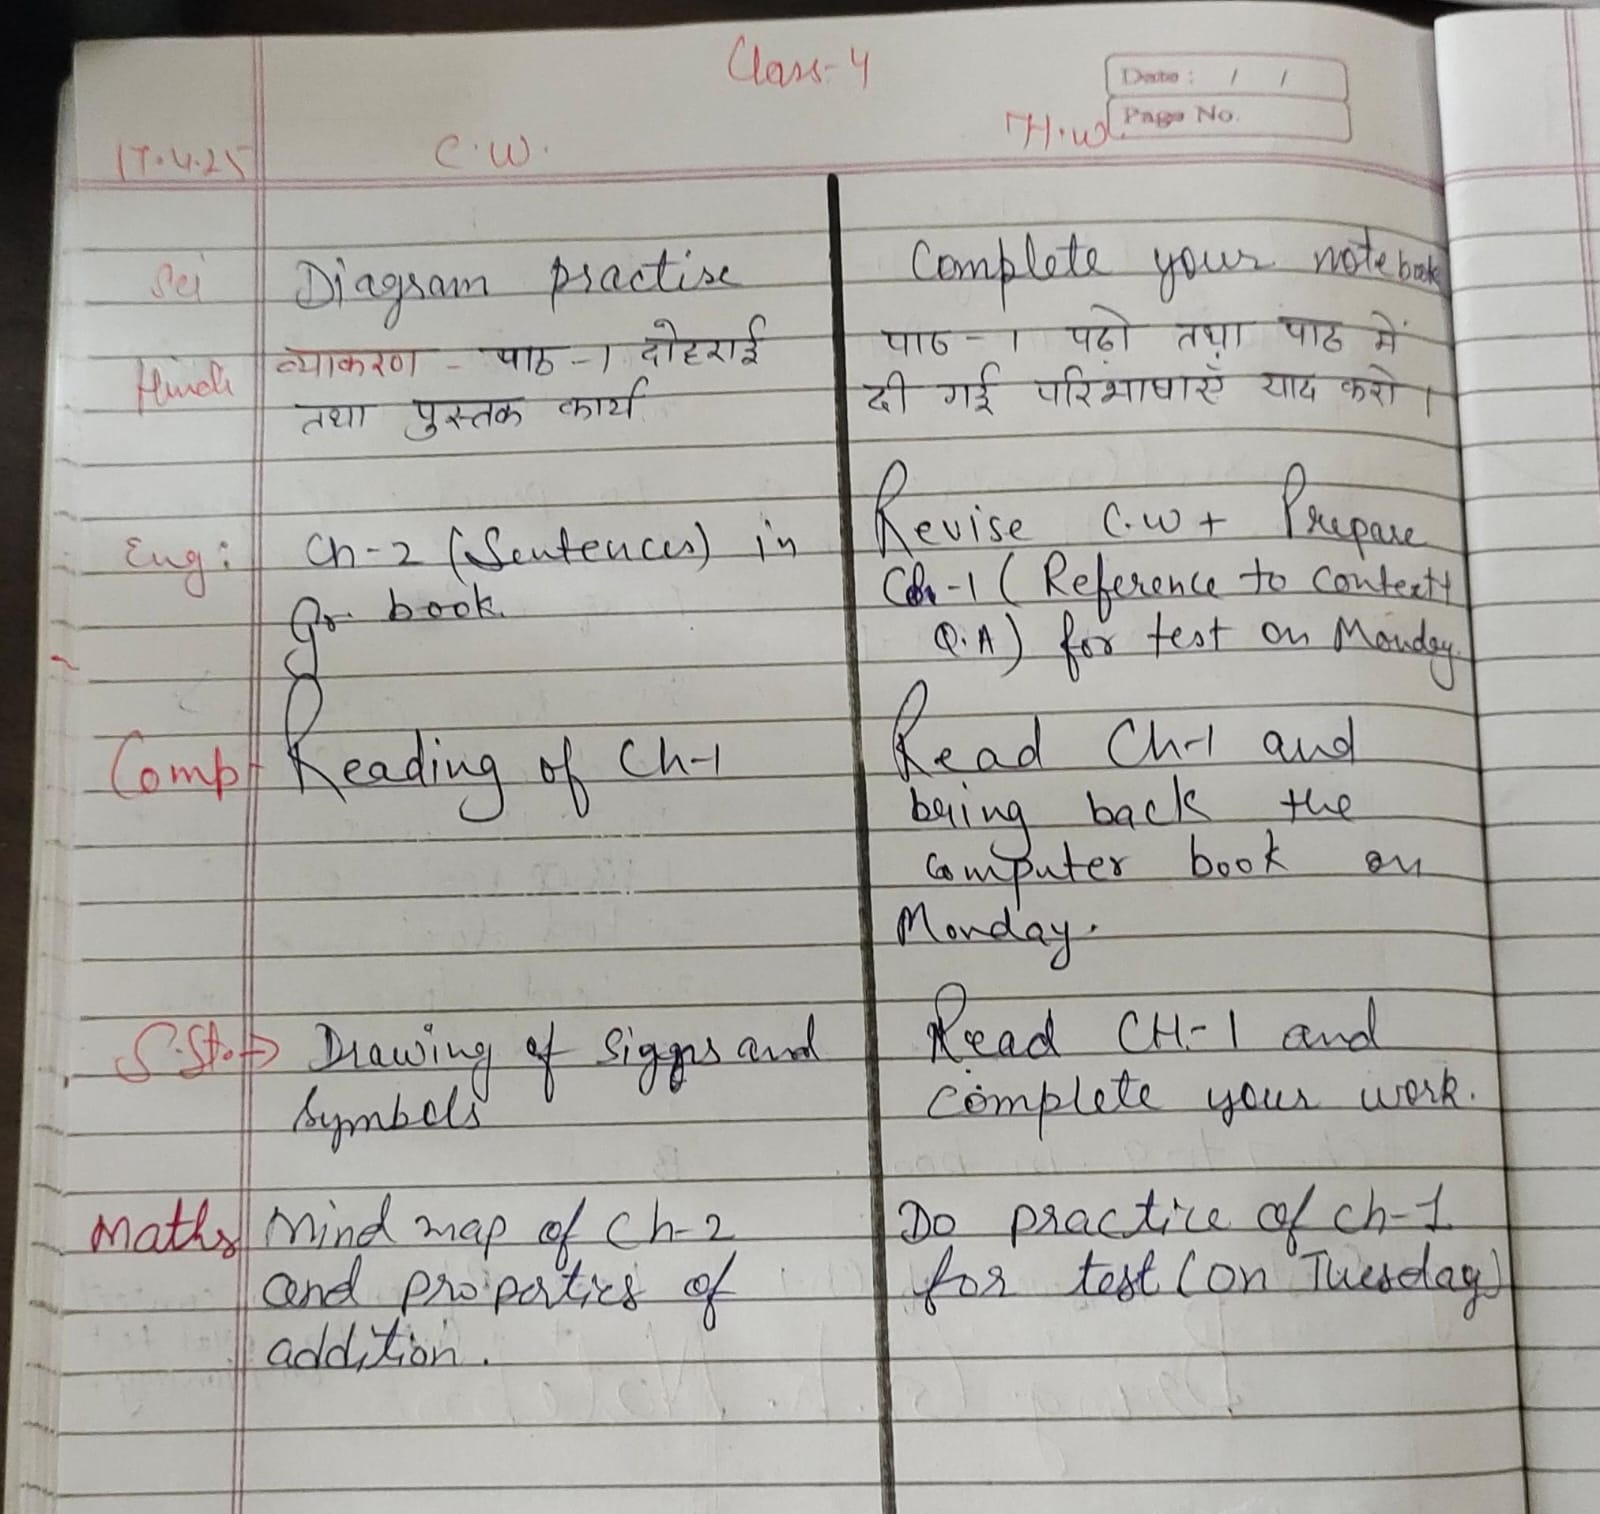 Class-4
Date : / /
Page No.
17.4.25 C.W. H.W.
Sci Diagram practise Complete your notebook
Hindi व्याकरण - पाठ -1 दोहराई पाठ -1 पढ़ो तथा पाठ में
तथा पुस्तक कार्य दी गई परिभाषाएँ याद करो।
Eng: Ch-2 (Sentences) in Revise C.W + Prepare
Gr. book. Ch-1 ( Reference to Context
Q.A) for test on Monday.
Comp Reading of Ch-1 Read Ch-1 and
bring back the
computer book on
Monday.
S.St.→ Drawing of Siggns and Read CH-1 and
Symbols complete your work.
Maths Mind map of Ch-2 Do practice of ch-1
and properties of for test (on Tuesday)
addition.